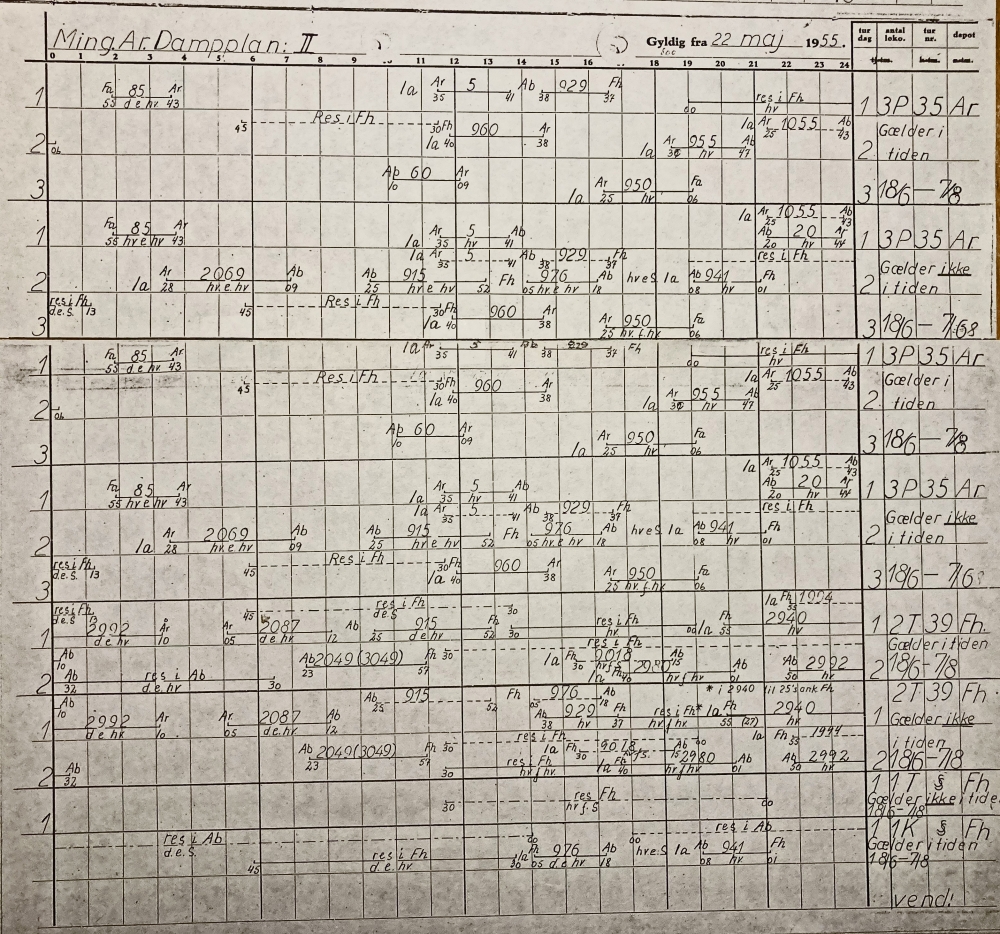 Ming. Ar. Dampplan: II
Gyldig fra 22 maj 1955.
tur dag antal loko. tur nr. depot
0 1 2 3 4 5 6 7 8 9 11 12 13 14 15 16 18 19 20 21 22 23 24
1 Fa 85 Ar 1a Ar 5 Ab 929 Fh res i Fh 1 3P 35 Ar
55 d.e.hv 43 35 41 38 37 00 hv
45 Res i Fh 30 Fh 960 Ar 1a Ar 1055 Ab Gælder i
2 06 1a 40 38 1a Ar 955 Ab 25 43 2 tiden
30 hv 47
Ab 60 Ar Ar 950 Fa
3 10 09 1a 25 hv 06 3 18/6 — 7/8
1a Ar 1055 Ab
1 Fa 85 Ar Ar 5 Ab Ab 20 Ar 1 3P 35 Ar
55 hv.e.hv 43 1a 35 hv 41 20 hv 44
1a Ar 5 Ab 929 Fh res i Fh
2 Ar 2069 Ab Ab 915 Fh 976 Ab hve S 1a Ab 941 Fh Gælder ikke
1a 28 hv.e.hv 09 25 hv e hv 52 05 hv e hv 18 08 hv 01 2 i tiden
res i Fh, d.e.S. 13 45 Res i Fh 30 Fh 960 Ar Ar 950 Fa
3 1a 40 38 25 hv.f.hv 06 3 18/6 — 7/8
1 Fa 85 Ar 1a Ar 5 Ab 929 Fh res i Fh 1 3P 35 Ar
55 d.e.hv 43 35 41 38 37 00 hv
45 Res i Fh 30 Fh 960 Ar 1a Ar 1055 Ab Gælder i
2 06 1a 40 38 1a Ar 955 Ab 25 43 2 tiden
30 hv 47
Ab 60 Ar Ar 950 Fa
3 10 09 1a 25 hv 06 3 18/6 — 7/8
1a Ar 1055 Ab
1 Fa 85 Ar Ar 5 Ab Ab 20 Ar 1 3P 35 Ar
55 hv.e.hv 43 1a 35 hv 41 20 hv 44
1a Ar 5 929 Fh res i Fh
2 Ar 2069 Ab Ab 915 Fh 976 Ab hve S 1a Ab 941 Fh Gælder ikke
1a 28 hv.e.hv 09 25 hv e hv 52 05 hv e hv 18 08 hv 01 2 i tiden
res i Fh, d.e.S. 13 45 Res i Fh 30 Fh 960 Ar Ar 950 Fa
3 1a 40 38 25 hv.f.hv 06 3 18/6 —
res i Fh d.e.S 45 res i Fh d.e.S 30 1a Fh 1994
1 2992 Ar Ar 2087 Ab 915 Fh res i Fh Fh 2940 1 2T 39 Fh.
d e hv 10 05 d.e.hv 12 25 d e hv 52 30 hv 55 hv
Ab 10 Ab 2049 (3049) Fh 30 res i Fh 1a Fh 2018 Gælder i tiden
2 Ab res i Ab 23 57 1a Fh 2980 Ab Ab 2992 2 18/6 — 7/8
32 d.e.hv 30 40 hv f hv 01 50 hv
Ab 915 Fh 976 Ab * i 2940 til 25's ank Fh 2T 39 Fh.
Ab 10 25 52 05 18
1 2992 Ar Ar 2087 Ab Ab 929 Fh res i Fh * 1a Fh 2940 1 Gælder ikke
d e hv 10 05 d e hv 12 38 hv 37 hv f hv 55 (27) hv
30 res i Fh 1a Fh i tiden
2 Ab Ab 2049 (3049) Fh 1a Fh 2980 Ab Ab 2992 2 18/6 — 7/8
32 23 57 30 res i Fh hv f hv 40 hv f hv 01 50 hv
1 30 res Fh hv f.S 00 1 1T § Fh
Gælder ikke i tiden
18/6 — 7/8
1 res i Ab d.e.S. 00 00 res i Ab 1 1K § Fh
45 res i Fh d.e.hv 30 1a Fh 976 Ab hve S 1a Ab 941 Fh Gælder i tiden
05 d.e.hv 18 08 hv 01 18/6 — 7/8
vend!